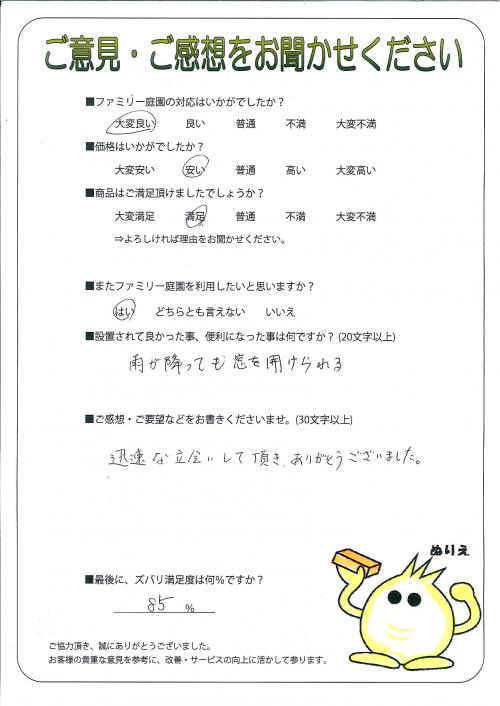 ご意見・ご感想をお聞かせください
■ファミリー庭園の対応はいかがでしたか？
大変良い 良い 普通 不満 大変不満
■価格はいかがでしたか？
大変安い 安い 普通 高い 大変高い
■商品はご満足頂けましたでしょうか？
大変満足 満足 普通 不満 大変不満
⇒よろしければ理由をお聞かせください。
■またファミリー庭園を利用したいと思いますか？
はい どちらとも言えない いいえ
■設置されて良かった事、便利になった事は何ですか？(20文字以上)
雨が降っても窓を開けられる
■ご感想・ご要望などをお書きくださいませ。(30文字以上)
迅速な立会いして頂き、ありがとうございました。
ぬりえ
■最後に、ズバリ満足度は何％ですか？
85 %
ご協力頂き、誠にありがとうございました。
お客様の貴重な意見を参考に、改善・サービスの向上に活かして参ります。